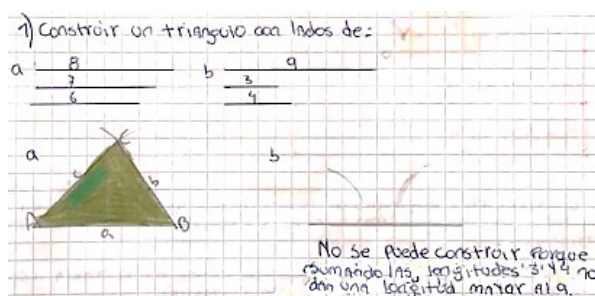 1) Construir un triangulo con lados de:
a 8
7
6
b 9
3
4
a
C
c
b
A
B
a
b
No se puede construir porque
sumando las longitudes 3 y 4 no
dan una longitud mayor al 9.